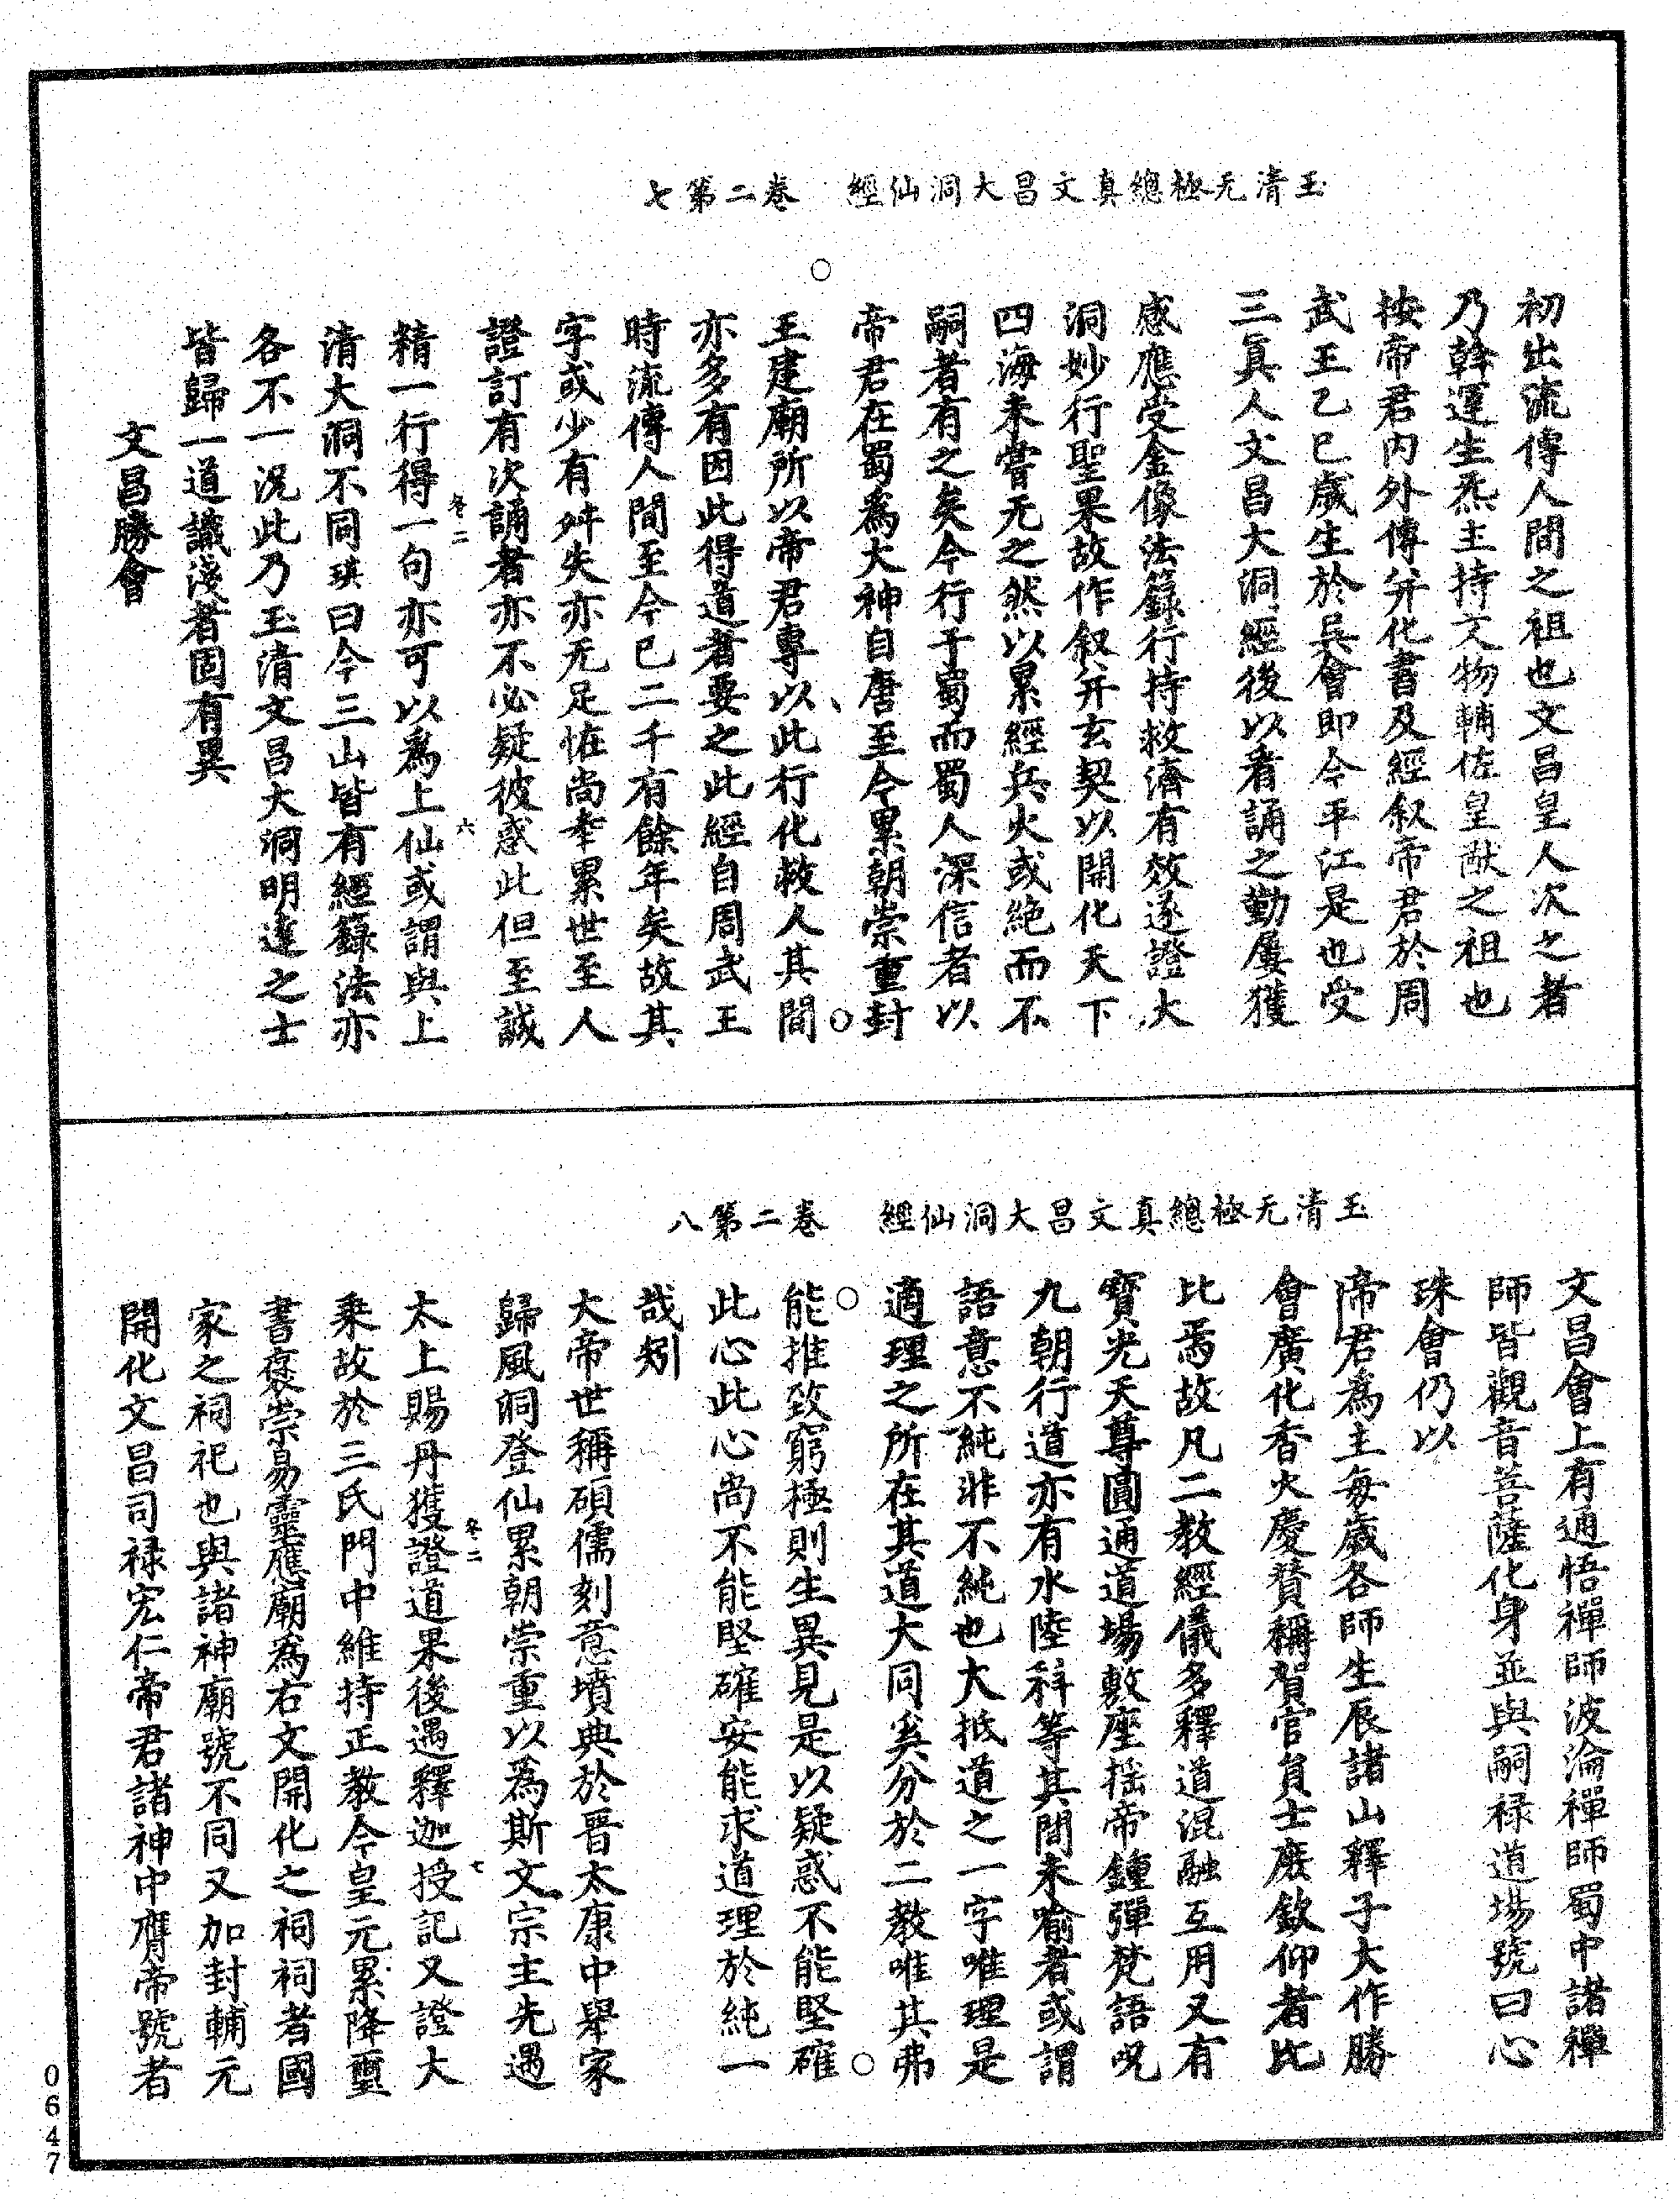 玉清无極總真文昌大洞仙經　卷二第七
初出流傳人間之祖也文昌皇人次之者
乃斡運生炁主持文物輔佐皇猷之祖也
按帝君内外傳并化書及經叙帝君於周
武王乙巳歲生於吳會即今平江是也受
三真人文昌大洞經後以看誦之勤屢獲
感應受金像法籙行持救濟有效遂證大
洞妙行聖果故作叙并玄契以開化天下
四海未嘗无之然以累經兵火或絶而不
嗣者有之矣今行于蜀而蜀人深信者以
帝君在蜀爲大神自唐至今累朝崇重封
王建廟所以帝君專以此行化救人其間
亦多有因此得道者要之此經自周武王
時流傳人間至今已二千有餘年矣故其
字或少有舛失亦无足恠尚幸累世至人
證訂有次誦者亦不必疑彼惑此但至誠
卷二　六
精一行得一句亦可以爲上仙或謂與上
清大洞不同琪曰今三山皆有經籙法亦
各不一况此乃玉清文昌大洞明達之士
皆歸一道識淺者固有異
文昌勝會
玉清无極總真文昌大洞仙經　卷二第八
文昌會上有通悟禪師波淪禪師蜀中諸禪
師皆觀音菩薩化身並與嗣禄道場號曰心
珠會仍以
帝君為主每歲各師生辰諸山釋子大作勝
會廣化香火慶賛稱賀官員士庶欽仰者比
比焉故凡二教經儀多釋道混融互用又有
寳光天尊圓通道場敷座揺帝鐘彈梵語呪
九朝行道亦有水陸科等其間未喻者或謂
語意不純非不純也大抵道之一字唯理是
適理之所在其道大同奚分於二教唯其弗
能推致窮極則生異見是以疑惑不能堅確
此心此心尚不能堅確安能求道理於純一
哉矧
大帝世稱碩儒刻意墳典於晉太康中舉家
歸風洞登仙累朝崇重以為斯文宗主先遇
卷二　七
太上賜丹獲證道果後遇釋迦授記又證大
乗故於三氏門中維持正教今皇元累降璽
書褒崇易靈應廟為右文開化之祠祠者國
家之祠祀也與諸神廟號不同又加封輔元
開化文昌司禄宏仁帝君諸神中膺帝號者
0647